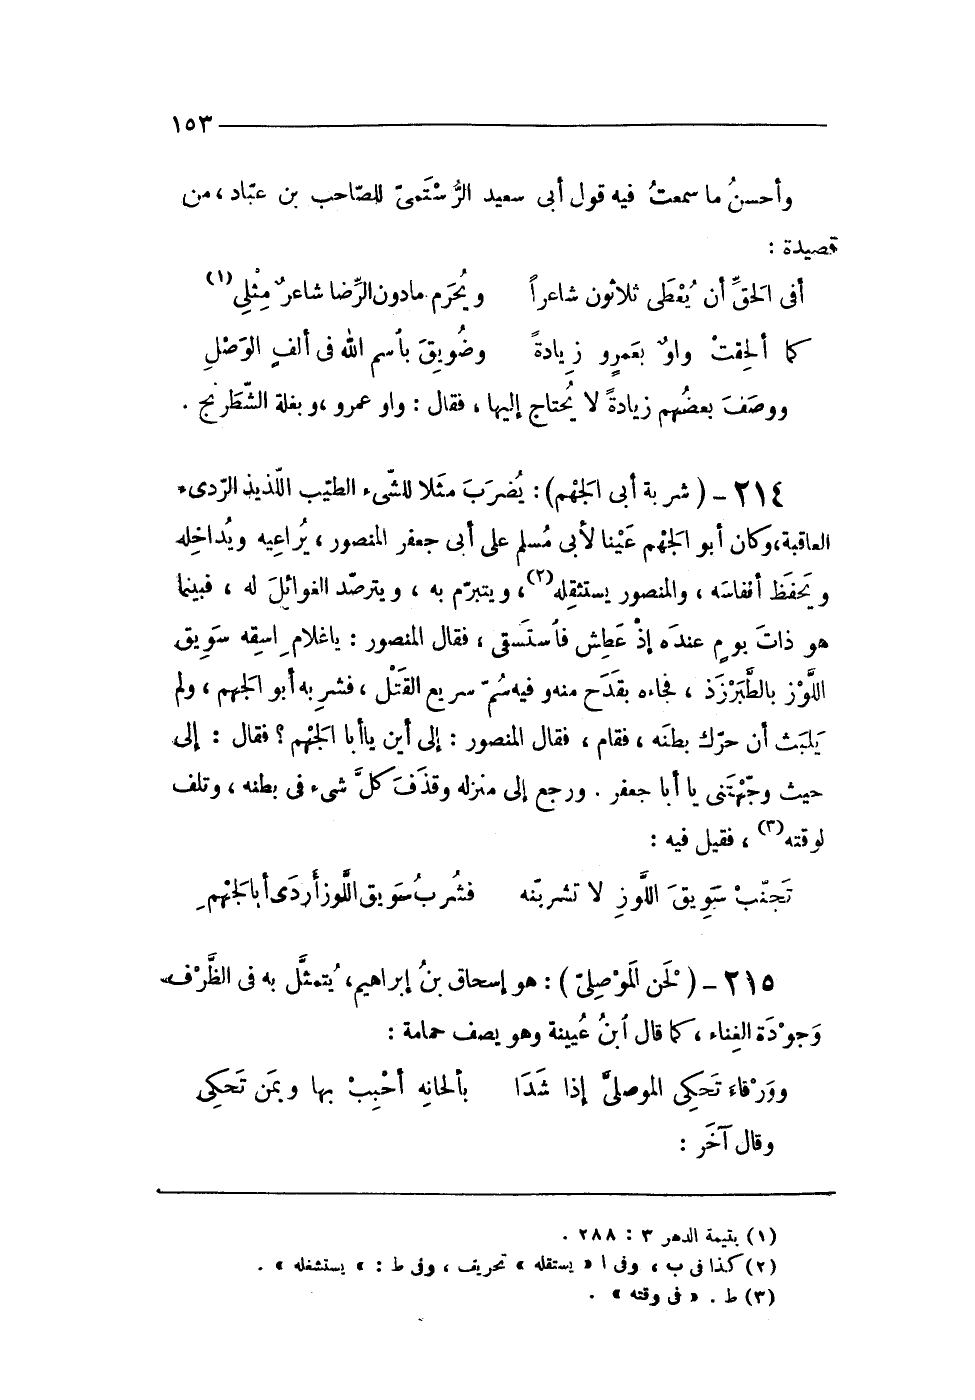 ١٥٣
وأحسنُ ما سمعتُ فيه قول أبى سعيد الرُّسْتَمىّ للصّاحب بن عبّاد ، من
قصيدة :
أفى الحقِّ أن يُعْطَى ثلاثون شاعراً ويُحْرَم مادون الرِّضا شاعرٌ مِثْلِى (١)
كما أُلحِقتْ واوٌ بعَمرٍو زِيادةً وضُويِقَ بٱسم الله فى ألفِ الوَصْلِ
ووصَفَ بعضُهم زيادةً لا يُحتاج إليها ، فقال : واو عمرو ، وبغلة الشّطَرنج .
٢١٤ – ( شربة أبى الجَهْم ) : يُضرَبَ مثَلا للشّىء الطيّب اللّذيذ الرّدىء
العاقبة ، وكان أبو الجَهْم عَيْنا لأبى مُسلم على أبى جعفر المنصور ، يُراعِيه ويُداخِله
ويَحفَظ أنفاسَه ، والمنصور يستثقِله (٢) ، ويتبرّم به ، ويترصّد الغوائلَ له ، فبينما
هو ذاتَ يومٍ عندَه إذْ عَطِش فٱستَسقى ، فقال المنصور : ياغلام اسقِه سَوِيق
اللَّوْز بالطَّبَرْزَذ ، فجاءه بقَدَح منه وفيه سُمّ سريع القَتْل ، فشربه أبو الجهم ، ولم
يَلبَث أن حرّك بطنَه ، فقام ، فقال المنصور : إلى أين ياأبا الجَهْم ؟ فقال : إلى
حيث وجّهْتَنى يا أبا جعفر . ورجع إلى منزله وقذَفَ كلَّ شىء فى بطنه ، وتلف
لوقته (٣) ، فقيل فيه :
تَجنّبْ سَوِيقَ اللَّوزِ لا تشربنّه فشُربُ سَويق اللَّوز أَردَى أبا الجَهْمِ
٢١٥ – ( لَحْن المَوْصِلىّ ) : هو إسحاق بنُ إبراهيم ، يُتمثَّل به فى الظَّرْف
وَجوْدَة الغِناء ، كما قال ٱبنُ عُيينة وهو يصف حمامة :
ووَرْقاءَ تَحكِى الموصلىَّ إذا شَدَا بألحانِه أَحْبِبْ بها وبمَن تَحكِى
وقال آخَر :
(١) يتيمة الدهر ٣ : ٢٨٨ .
(٢) كذا فى ب ، وفى ا « يستقله » تحريف ، وفى ط : « يستشغله » .
(٣) ط . « فى وقته » .